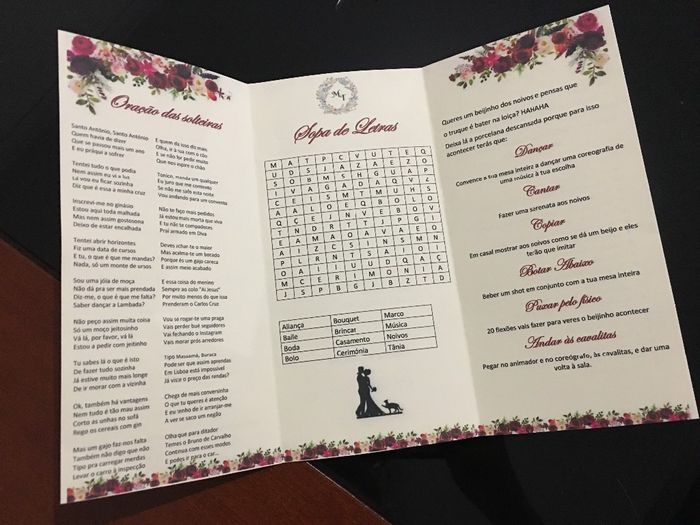 Oração das solteiras
Santo António, Santo António
Quem havia de dizer
Que se passou mais um ano
E eu práqui a sofrer
Tentei tudo o que podia
Nem assim eu vi a luz
Lá vou eu ficar sozinha
Diz que é essa a minha cruz
Inscrevi-me no ginásio
Estou aqui toda malhada
Mas nem assim gostosona
Deixo de estar encalhada
Tentei abrir horizontes
Fiz uma data de cursos
E tu, o que é que me mandas?
Nada, só um monte de ursos
Sou uma jóia de moça
Não dá pra ser mais prendada
Diz-me, o que é que me falta?
Saber dançar a Lambada?
Não peço muita coisa
Só um moço jeitosinho
Vá lá, por favor, vá lá
Estou a pedir com jeitinho
Tu sabes lá o que é isto
De fazer tudo sozinha
Já estive muito mais longe
De ir morar com a vizinha
Ok, também há vantagens
Nem tudo é tão mau assim
Corto as unhas no sofá
Rego os cereais com gin
Mas um gajo faz nos falta
Também não digo que não
Tipo pra carregar merdas
Levar o carro à inspecção
E quem dá isso dá mais
Olha, ir à rua com o cão
E se não for pedir muito
Que nos inspire o chão
Tonico, manda um qualquer
Eu juro que me contento
Se não me safo esta noite
Vou andando para um convento
Não te faço mais pedidos
Já estou mais morta que viva
E tu não te compadeces
Prai armado em Diva
Deves achar-te o maior
Mas acalma-te um bocado
Porque és um gajo careca
E assim meio acabado
E essa coisa do menino
Sempre ao colo "Ai Jesus"
Por muito menos do que isso
Prenderam o Carlos Cruz
Vou-se rogar-te uma praga
Vais perder bué seguidores
Vai fechando o Instagram
Vais morar prós arredores
Tipo Massamá, Buraca
Pode ser que assim aprendas
Em Lisboa está impossível
Já viste o preço das rendas?
Chega de mais conversinha
O que tu queres é atenção
E eu venho de ir arranjar-me
A ver se saco um negão
Olha que para ditador
Temos o Bruno de Carvalho
Continua com esses modos
E podes ir para o car...
M T
Sopa de Letras
M A T P C V U T E Q
U D S J A Z A E Z O
S O B M S H G U A P
I V A G A D A Q V Ç
C E I S M T M U H S
A A L O E Q B O L O
Q C E J N V E B O V
T N D R T T J P G I
E A M A O A V A E O
A I Z C S I N S M N
P L R N T S A I Q I
O A I I U U D Q A Ç
M C E R I M O N I A
J S P B G J B Z T D
Aliança Bouquet Marco
Baile Brincar Música
Boda Casamento Noivos
Bolo Cerimónia Tânia
Queres um beijinho dos noivos e pensas que
o truque é bater na loiça? HAHAHA
Deixa lá a porcelana descansada porque para isso
acontecer terás que:
Dançar
Convence a tua mesa inteira a dançar uma coreografia de
uma música à tua escolha
Cantar
Fazer uma serenata aos noivos
Copiar
Em casal mostrar aos noivos como se dá um beijo e eles
terão que imitar
Botar Abaixo
Beber um shot em conjunto com a tua mesa inteira
Puxar pelo físico
20 flexões vais fazer para veres o beijinho acontecer
Andar às cavalitas
Pegar no animador e no coreógrafo, às cavalitas, e dar uma
volta à sala.